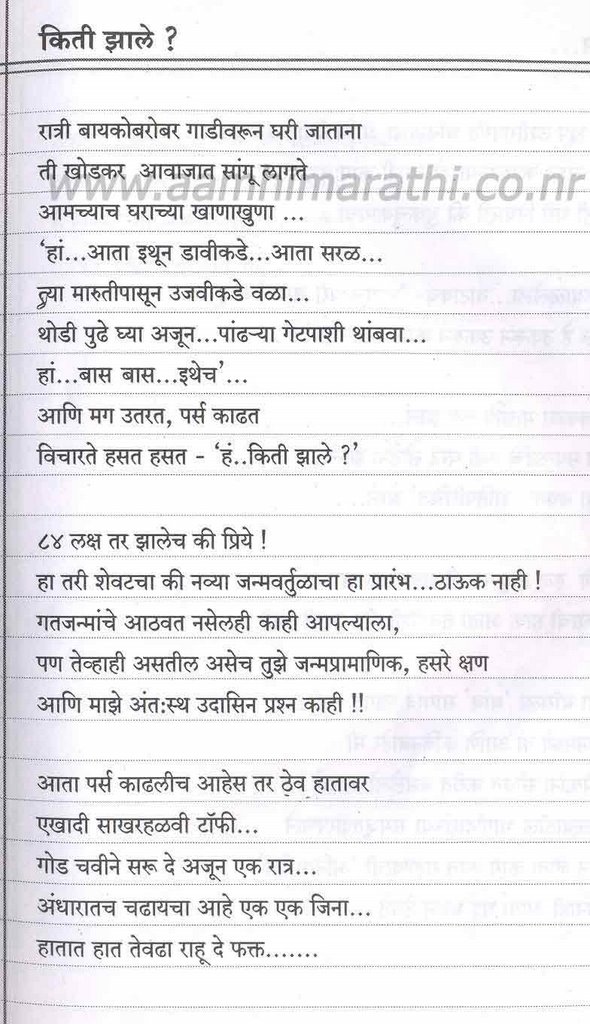 किती झाले ?
रात्री बायकोबरोबर गाडीवरून घरी जाताना
ती खोडकर आवाजात सांगू लागते
www.aamhimarathi.co.nr
आमच्याच घराच्या खाणाखुणा ...
‘हां...आता इथून डावीकडे...आता सरळ...
त्या मारुतीपासून उजवीकडे वळा...
थोडी पुढे घ्या अजून...पांढऱ्या गेटपाशी थांबवा...
हां...बास बास...इथेच’...
आणि मग उतरत, पर्स काढत
विचारते हसत हसत - ‘हं..किती झाले ?’
८४ लक्ष तर झालेच की प्रिये !
हा तरी शेवटचा की नव्या जन्मवर्तुळाचा हा प्रारंभ...ठाऊक नाही !
गतजन्मांचे आठवत नसेलही काही आपल्याला,
पण तेव्हाही असतील असेच तुझे जन्मप्रामाणिक, हसरे क्षण
आणि माझे अंत:स्थ उदासिन प्रश्न काही !!
आता पर्स काढलीच आहेस तर ठेव हातावर
एखादी साखरहळवी टॉफी...
गोड चवीने सरू दे अजून एक रात्र...
अंधारातच चढायचा आहे एक एक जिना...
हातात हात तेवढा राहू दे फक्त.......